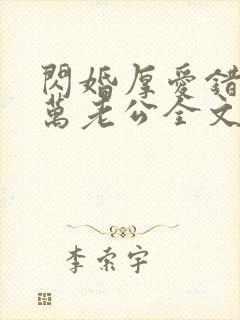 閃婚厚愛錯
萬老公全文
李索宇